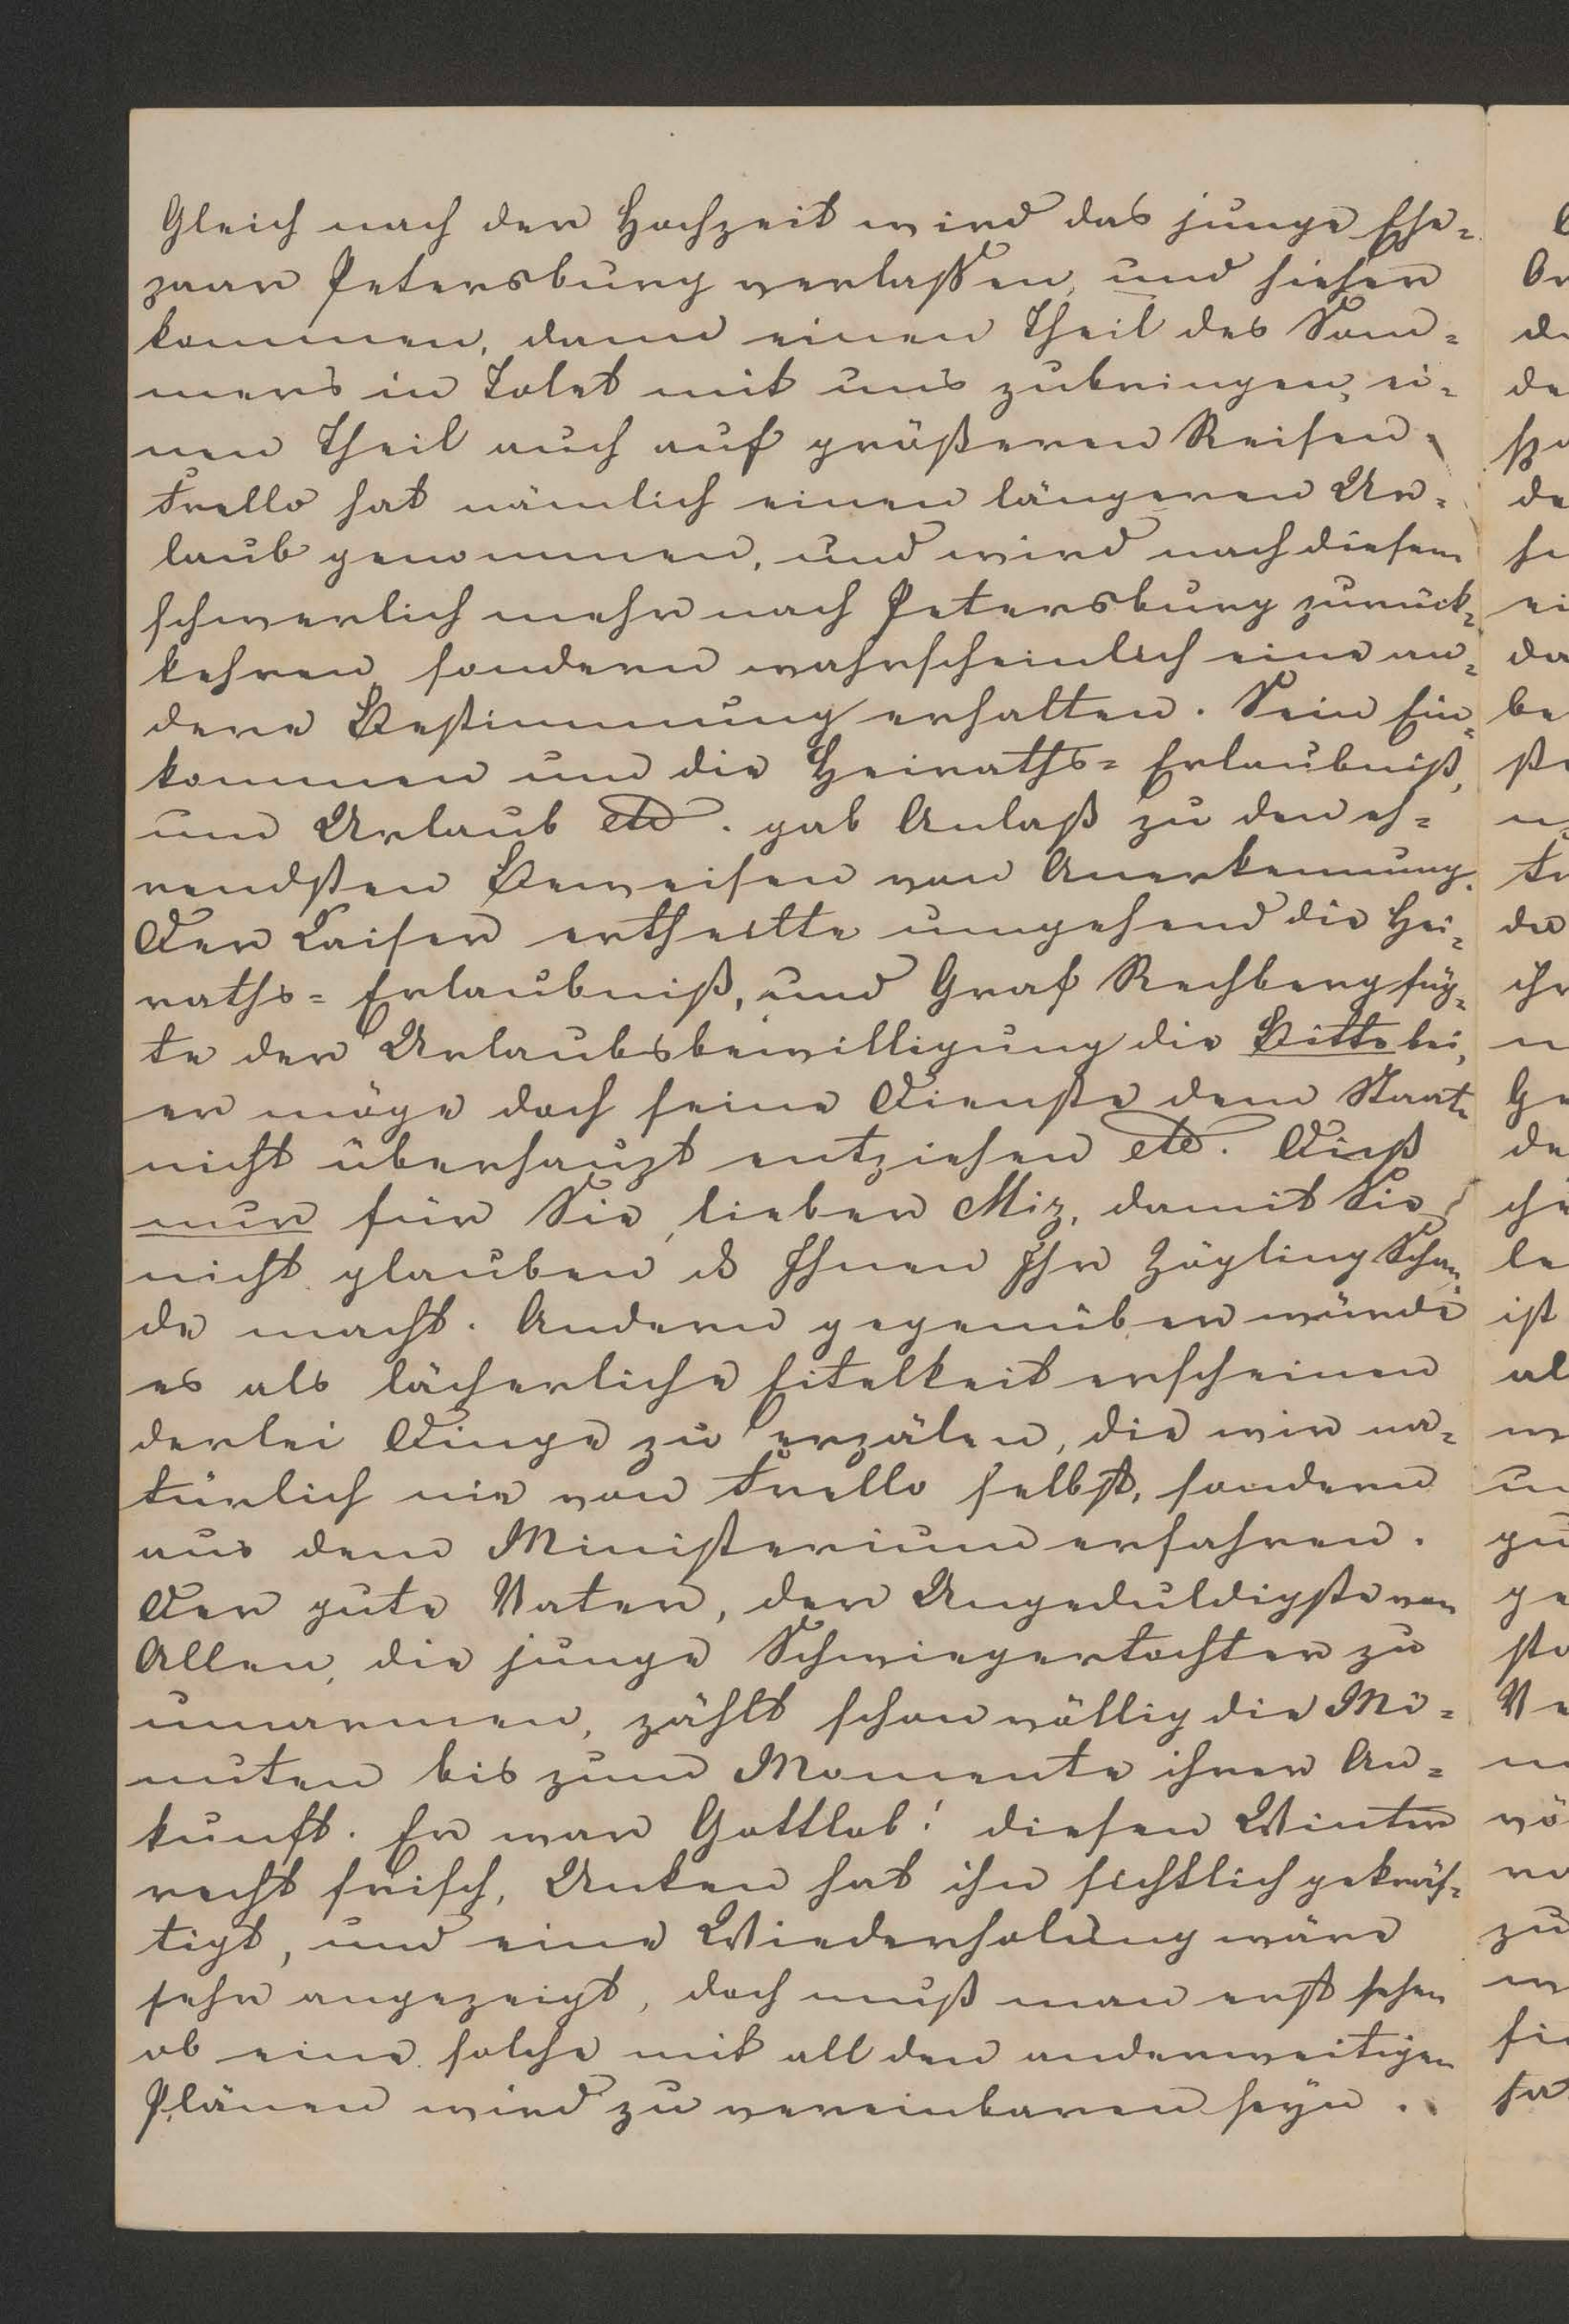 Gleich nach der Hochzeit wird das junge Ehe=
paar Petersburg verlassen, und hieher
kommen, dann einen Theil des Som=
mers in Tolet mit uns zubringen, ei=
nen Theil auch auf größeren Reisen.
Trello hat nämlich einen längeren Ur=
laub genommen, und wird nach diesem
schwerlich mehr nach Petersburg zurück=
kehren sondern wahrscheinlich eine an=
dere Bestimmung erhalten. Sein Ein=
kommen um die Heiraths=Erlaubniß,
um Urlaub etc. gab Anlaß zu den eh=
rendsten Beweisen von Anerkennung.
Der Kaiser ertheilte umgehend die Hei=
raths=Erlaubniß, und Graf Rechberg füg=
te der Urlaubsbewilligung die Bitte bei,
er möge doch seine Dienste dem Staate
nicht überhaupt entziehen etc. Dieß
nur für Sie, lieber Miz, damit Sie
nicht glauben ds Ihnen Ihr Zögling Schan=
de macht. Andern gegenüber würde
es als lächerliche Eitelkeit erscheinen
derlei Dinge zu erzälen, die wir na=
türlich nie von Trello selbst, sondern
aus dem Ministerium erfahren.
Der gute Vater, der Ungeduldigste von
Allen, die junge Schwiegertochter zu
umarmen, zählt schon völlig die Mi=
nuten bis zum Momente ihrer An=
kunft. Er war Gottlob! diesen Winter
recht frisch, Unken hat ihn sichtlich gekräf=
tigt, und eine Wiederholung wäre
sehr angezeigt, doch muß man erst sehen
ob eine solche mit all den anderweitigen
Plänen wird zu vereinbaren seyn.